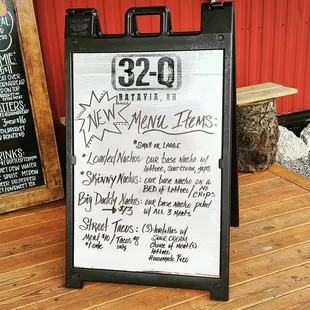 32-Q
BATAVIA, OH
NEW
MENU ITEMS:
*SMALL OR LARGE
*Loaded Nachos: our base nacho w/
lettuce, sour cream, japs
*Skinny Nachos: our base nacho on a
BED of lettuce/NO
CHIPS
Big Daddy Nachos: our base nacho piled
→ $13
w/ ALL 3 MEATS
Street Tacos: (3) tortillas w/
Meal $10/Tacos $8
SOUR CREAM
only
Choice of Meat(s)
lettuce,
Housemade Pico